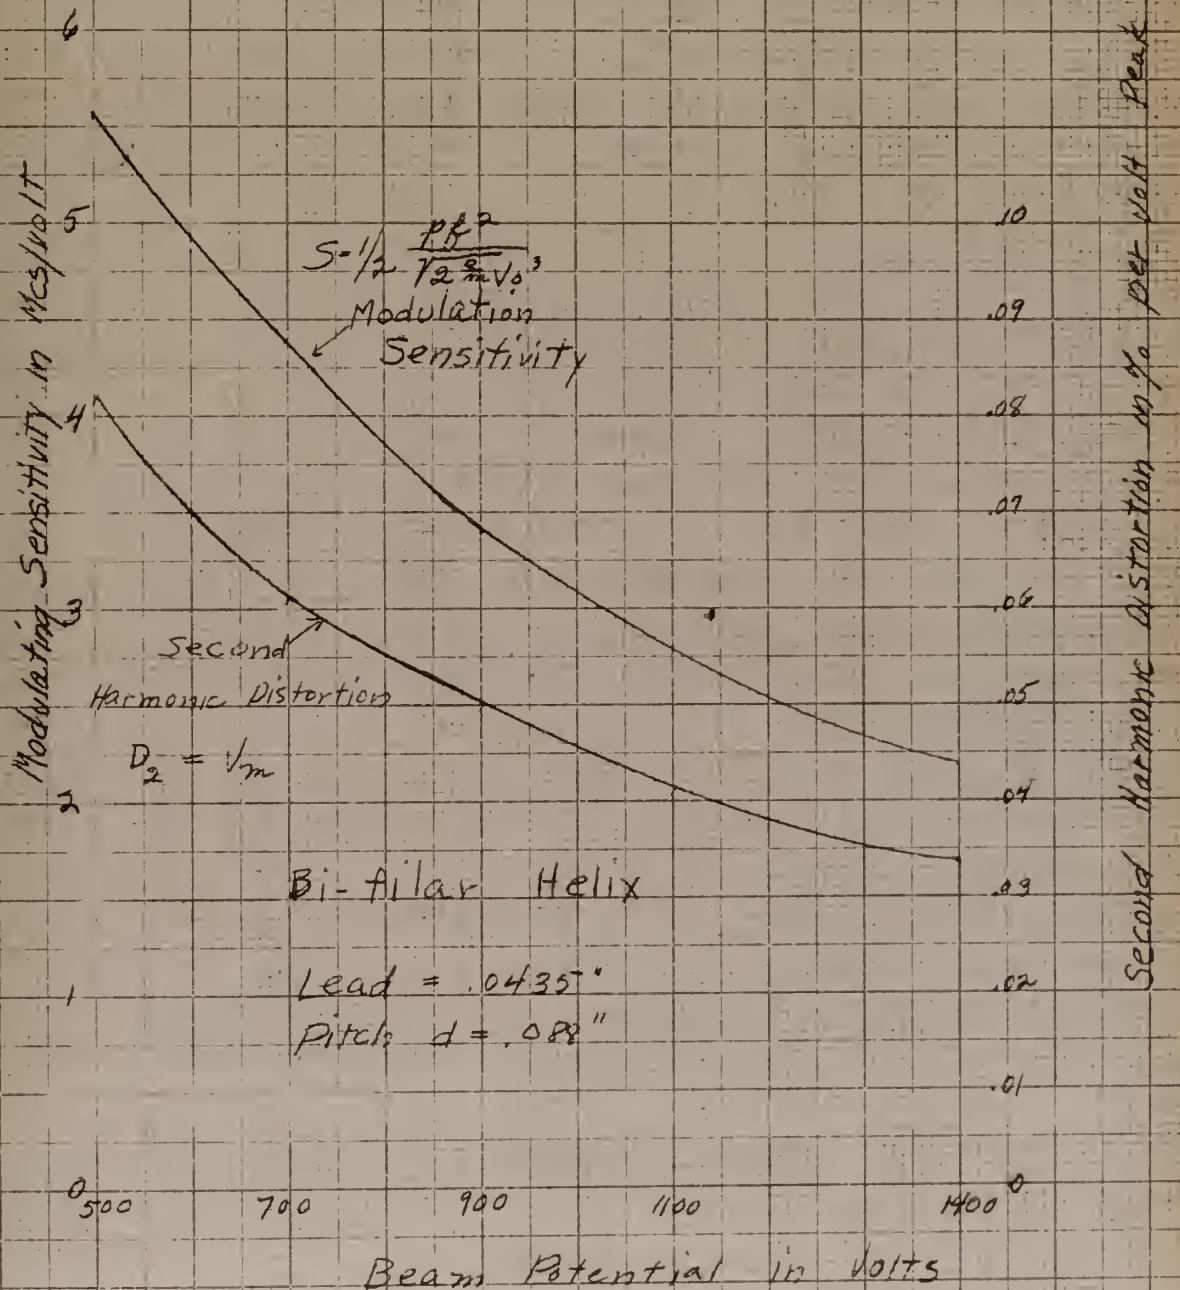 6
5
4
3
2
1
0
Modulating Sensitivity in Mcs/volt
S=1/2 pf² / √2 e/m V₀³
Modulation
Sensitivity
Second
Harmonic Distortion
D₂ = 1/m
Bi-filar Helix
Lead = .0435"
Pitch d = .088"
.10
.09
.08
.07
.06
.05
.04
.03
.02
.01
0
Second Harmonic Distortion in % per volt Peak
500 700 900 1100 1400
Beam Potential in Volts